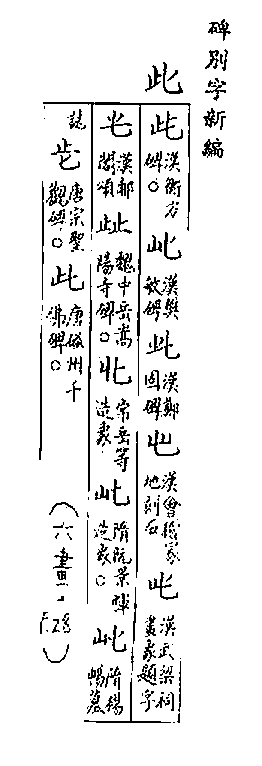 碑別字新編
此
此漢衡方碑。此漢樊敏碑此漢鄭固碑此漢會稽冢地刻石此漢武梁祠畫象題字
漢郙閣頌此魏中岳嵩陽寺碑。此常岳等造象此隋阮景暉造象。此隋楊暢墓
誌唐宗聖觀碑。此唐州千佛碑。
(六畫.
F.28)